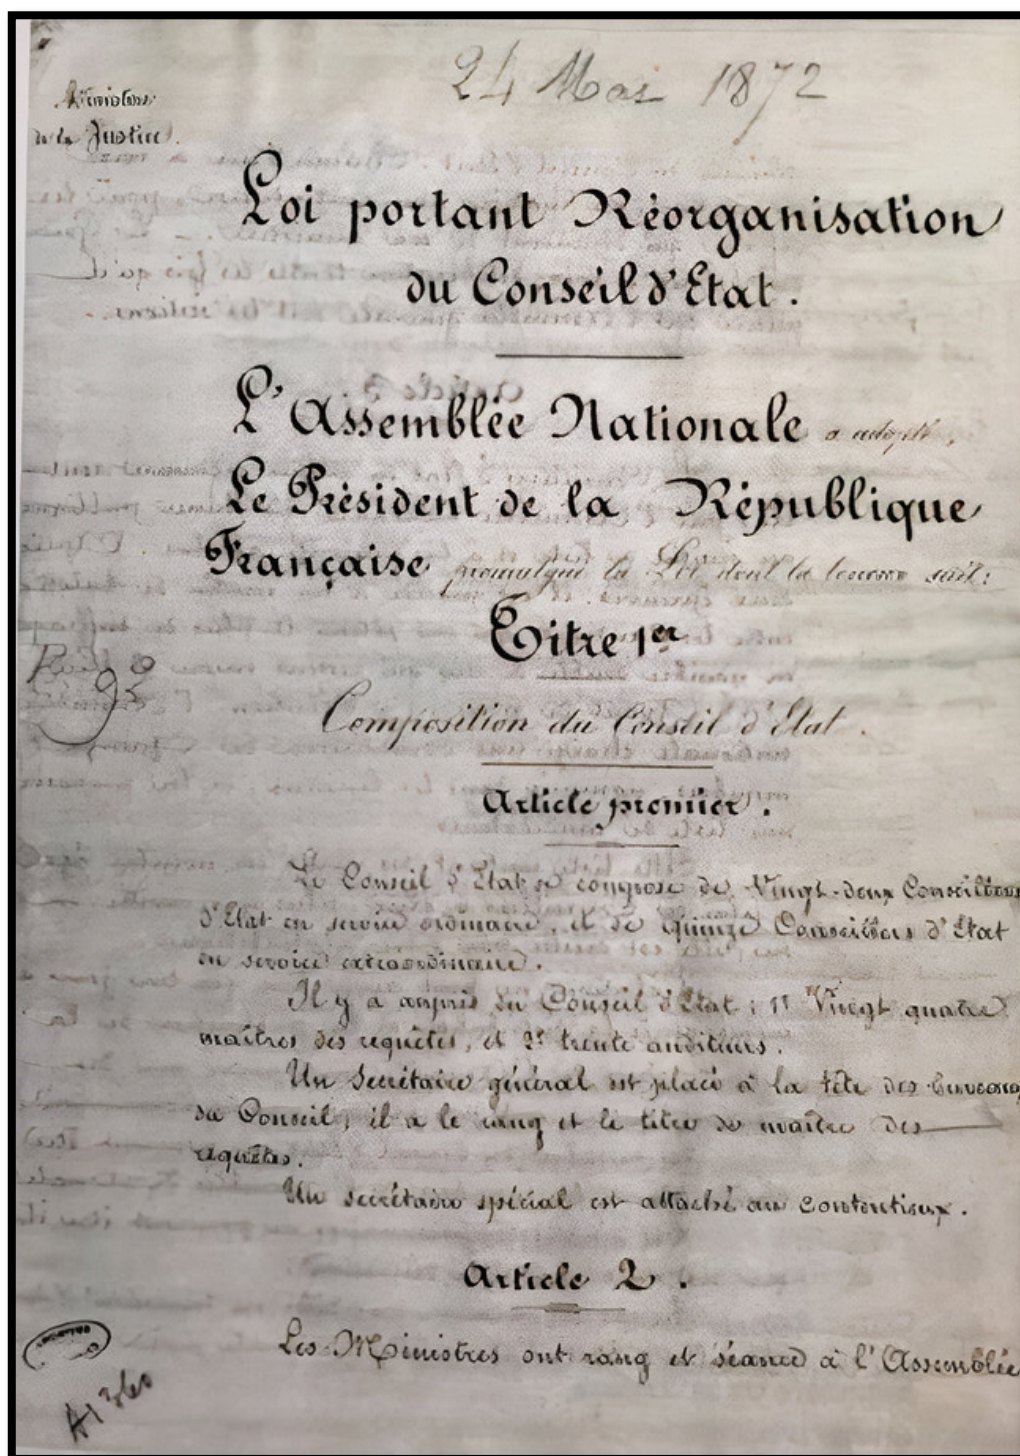 24 Mai 1872
Ministère
de la Justice.
Loi portant Réorganisation
du Conseil d'Etat.
L'Assemblée Nationale a adopté,
Le Président de la République
Française promulgue la Loi dont la teneur suit:
Titre 1er
Composition du Conseil d'Etat.
Article premier.
Le Conseil d'Etat se compose de Vingt-deux Conseillers
d'Etat en service ordinaire, et de quinze Conseillers d'Etat
en service extraordinaire.
Il y a auprès du Conseil d'Etat; 1° Vingt quatre
maîtres des requêtes, et 2° trente auditeurs.
Un Secrétaire général est placé à la tête des bureaux
du Conseil; il a le rang et le titre de maître des
requêtes.
Un secrétaire spécial est attaché au contentieux.
Article 2.
Les Ministres ont rang et séance à l'Assemblée
A1360